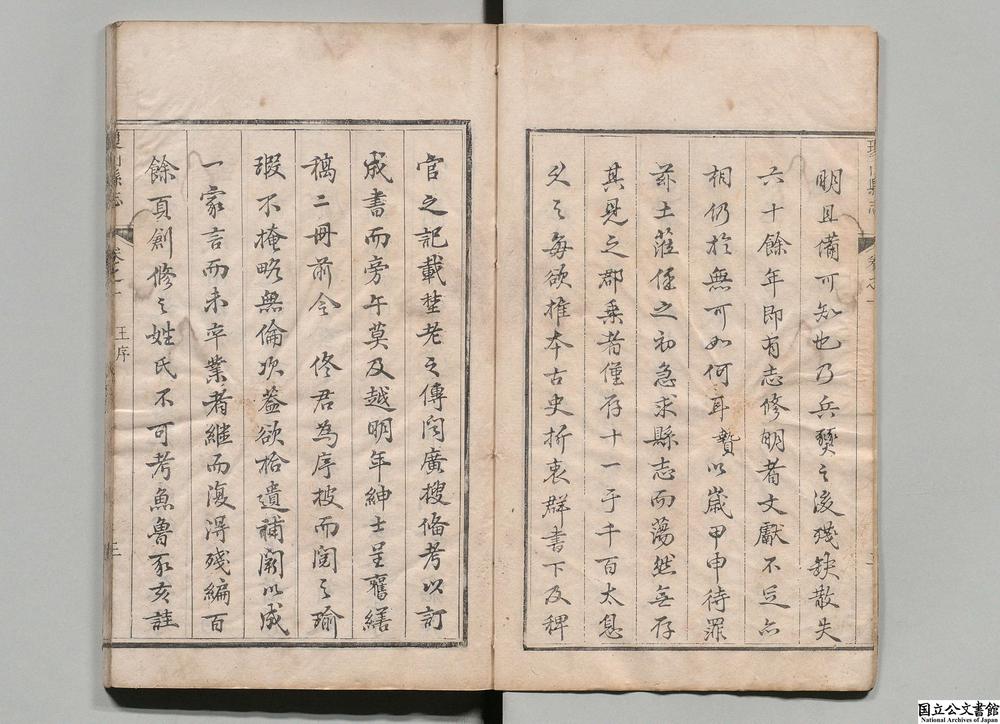 明且備可知也乃兵燹之後殘缺散失
六十餘年即有志修明者文獻不足亦
相仍於無可如何耳贄以歲甲申待罪
茲土蒞任之初急求縣志而蕩然無存
其見之郡乘者僅存十一于千百太息
久之每欲推本古史折衷群書下及稗
官之記載埜老之傳聞廣搜備考以訂
成書而旁午莫及越明年紳士呈舊繕
稿二冊前令 佟君為序披而閱之瑜
瑕不掩略無倫次蓋欲拾遺補闕以成
一家言而未卒業者繼而復得殘編百
餘頁創修之姓氏不可考魚魯豕亥註
縣志
卷之一
王序
国立公文書館
National Archives of Japan